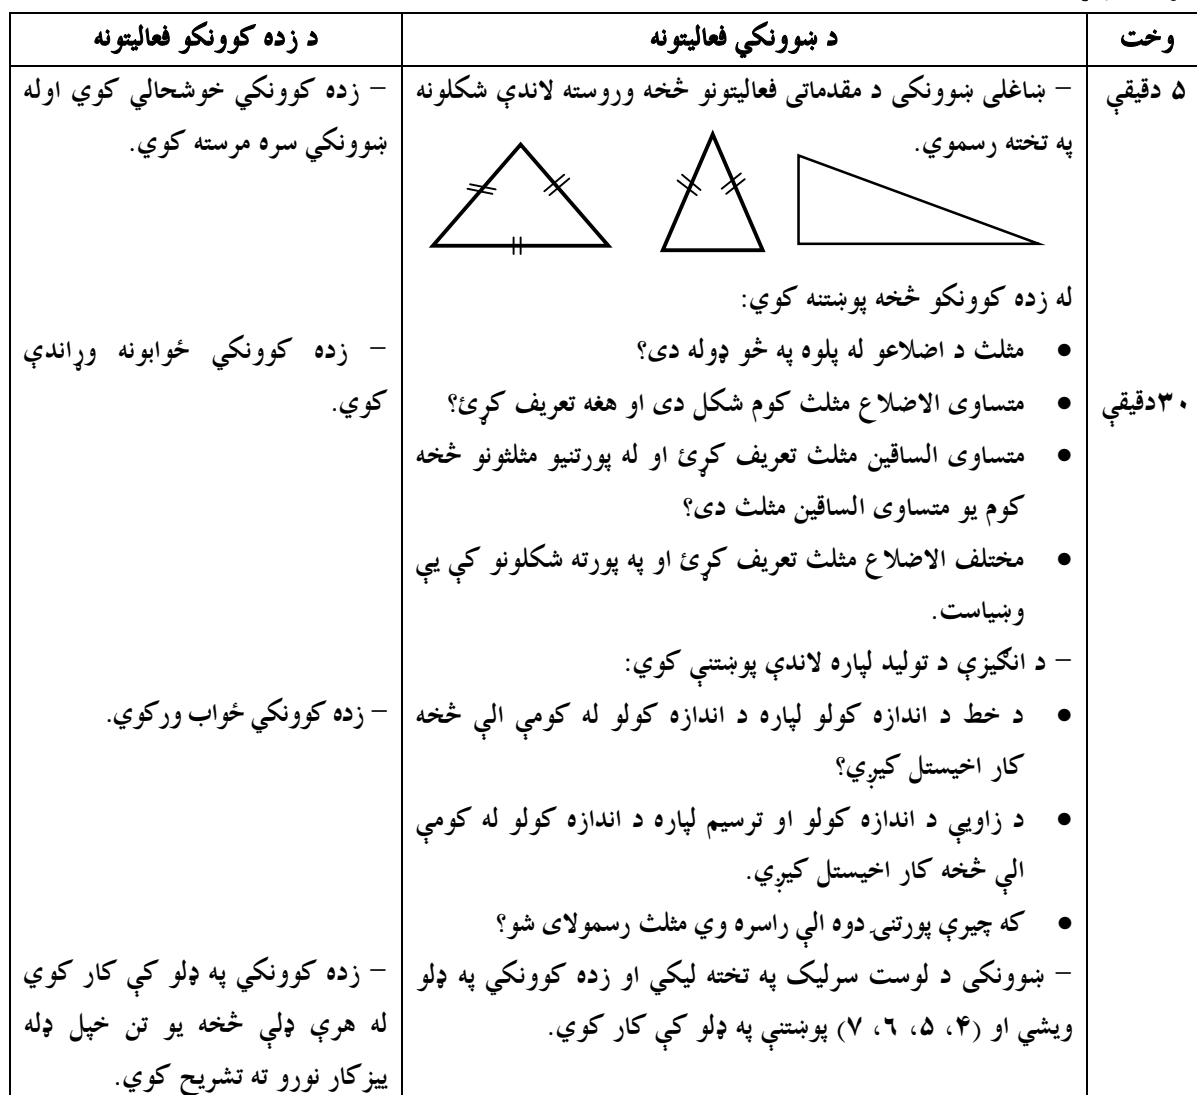 وخت
د ښوونکي فعاليتونه
د زده کوونکو فعاليتونه
۵ دقيقې
– ښاغلی ښوونکی د مقدماتی فعاليتونو څخه وروسته لاندې شکلونه
په تخته رسموي.
– زده کوونکي خوشحالي کوي اوله
ښوونکي سره مرسته کوي.
له زده کوونکو څخه پوښتنه کوي:
● مثلث د اضلاعو له پلوه په څو ډوله دی؟
– زده کوونکي ځوابونه وړاندې
کوي.
۳۰دقيقې
● متساوی الاضلاع مثلث کوم شکل دی او هغه تعريف کړئ؟
● متساوی الساقين مثلث تعريف کړئ او له پورتنيو مثلثونو څخه
کوم يو متساوی الساقين مثلث دی؟
● مختلف الاضلاع مثلث تعريف کړئ او په پورته شکلونو کې يې
وښياست.
– د انګيزې د توليد لپاره لاندې پوښتنې کوي:
● د خط د اندازه کولو لپاره د اندازه کولو له کومې الې څخه
کار اخيستل کيږي؟
– زده کوونکي ځواب ورکوي.
● د زاويې د اندازه کولو او ترسيم لپاره د اندازه کولو له کومې
الې څخه کار اخيستل کيږي.
● که چيرې پورتنۍ دوه الې راسره وي مثلث رسمولای شو؟
– ښوونکی د لوست سرليک په تخته ليکي او زده کوونکي په ډلو
ويشي او (۴، ۵، ٦، ۷) پوښتنې په ډلو کې کار کوي.
– زده کوونکي په ډلو کې کار کوي
له هرې ډلې څخه يو تن خپل ډله
ييزکار نورو ته تشريح کوي.